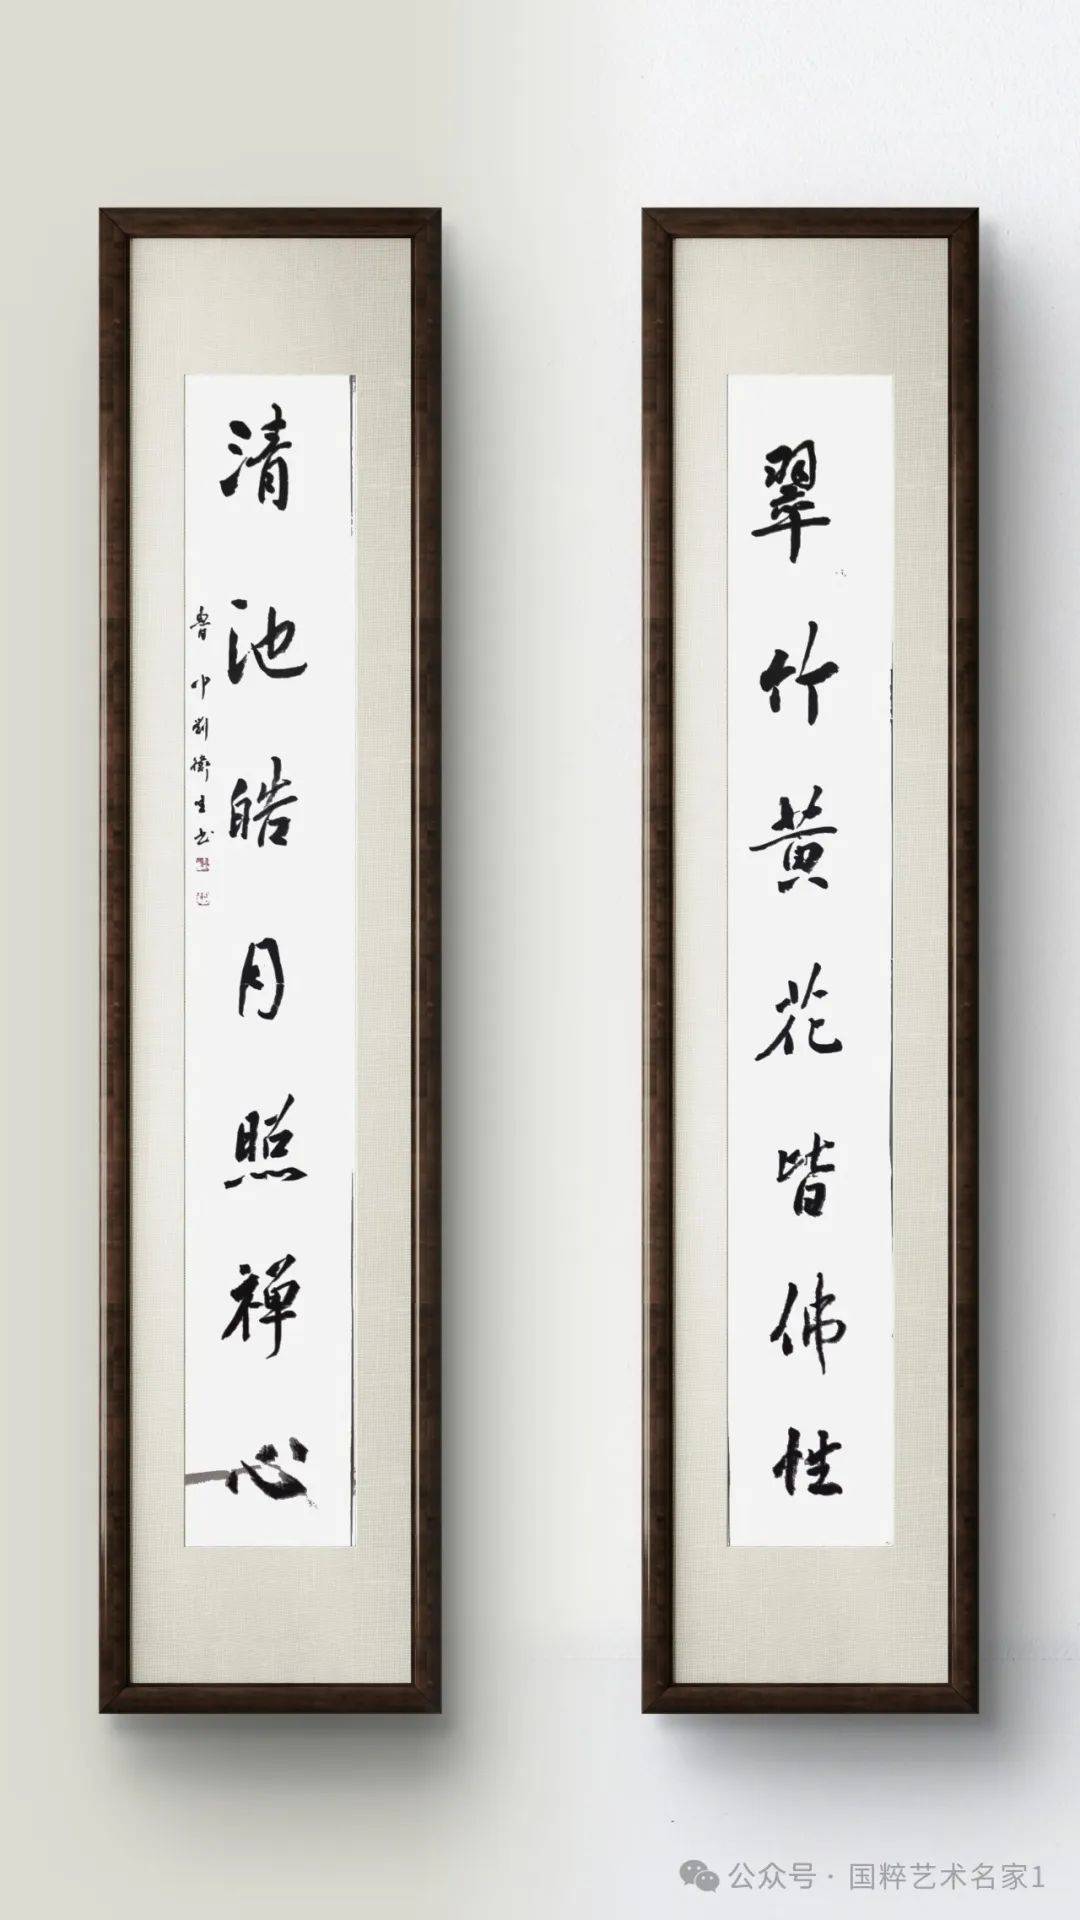 翠竹黄花皆佛性
清池皓月照禅心
魯中劉衛生书
公众号·国粹艺术名家1